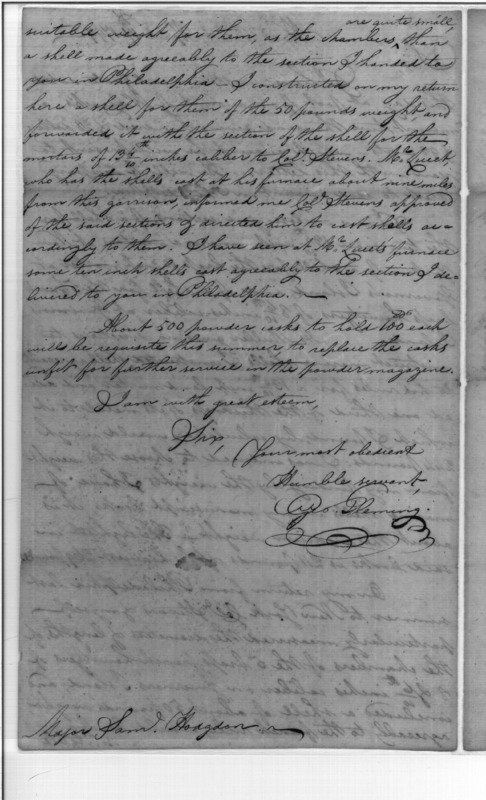 are quite small,
suitable weight for them, as the chambers ^ than
a shell made agreeably to the section I handed to
you in Philadelphia — I constructed on my return
here a shell for them of the 50 pounds weight and
forwarded it with the section of the shell for the
mortars of 13 inches caliber to Col. Stevens. Mr.
who has the shells cast at his furnace about nine miles
from this garrison, informed me Col. Stevens approved
of the said sections & directed him to cast shells ac=
cordingly to them. I have seen at Mr. furnace
some ten inch shells cast agreeably to the section I de=
livered to you in Philadelphia. —
About 500 powder casks to hold 100 each
will be requisite this summer to replace the casks
unfit for further service in the powder magazine.
I am with great esteem,
Sir,
Your most obedient
Humble servant,
Geo. Fleming.
Major Saml. Hodgdon